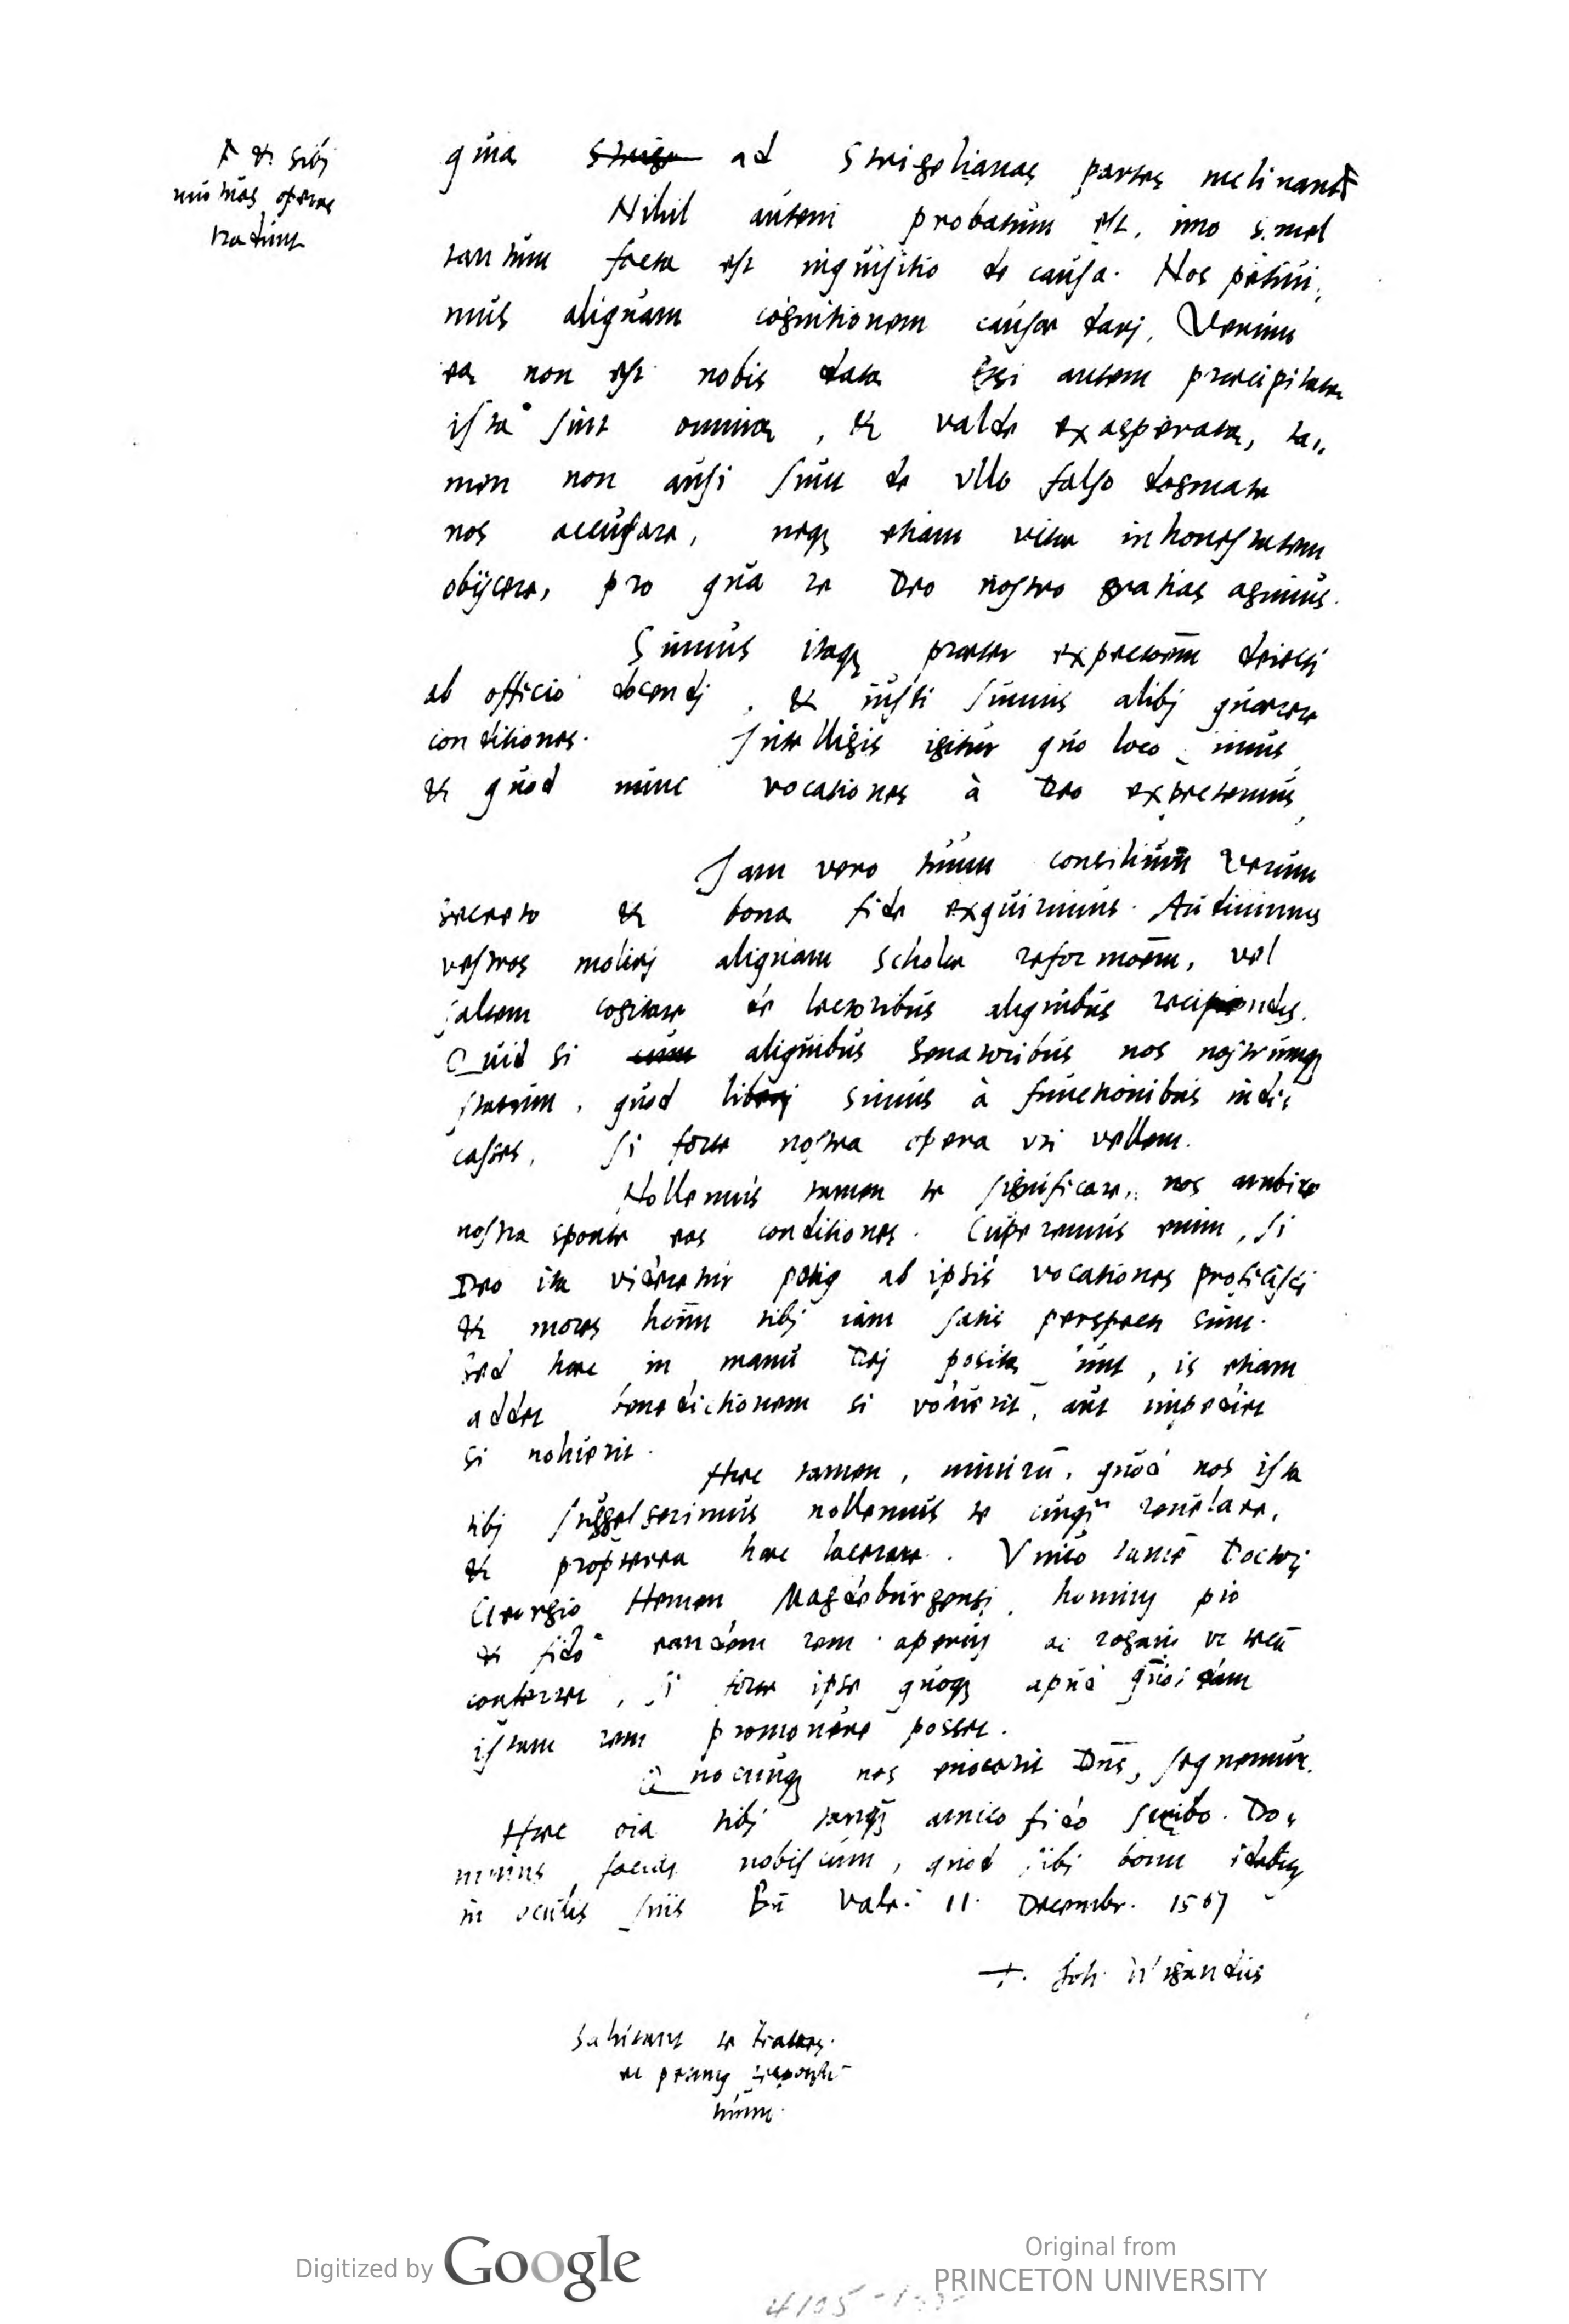 Ꝼ & sibi
mutuas operas
tradunt
quia Strige ad Strigelianas partes inclinantꝼ
Nihil autem probatum est, imo semel
tantum facta est inquisitio de causa. Nos petiui,
mus aliquam cognitionem causae dari, Verum
ea non est nobis data Etsi autem praecipitata
ista sint omnia, & valde exasperata, ta,,
men non ausi sunt de vllo falso dogmate
nos accusare, neq; etiam vitae inhonestatem
obijcere, pro qua re Deo nostro gratias agimus.
Sumus itaq; praeter expectoēm deiecti
ab officio docendi, & iussi sumus alibi quaerere
conditiones. Intelligis igitur quo loco simus,
& quod nunc vocationes à Deo expectemus,
Iam vero tuum consilium verum
secreto & bona fide exquirimus. Audiuimus
vestros moliri aliquam scholae reformoēm, vel
saltem cogitare de lectoribus aliquibus recipiendis.
Quid si cum aliquibus Senatoribus nos nostrumq;
statum, quod liberi simus à functionibus indi,
casses, si forte nostra opera vti vellent.
Nollemus tamen te significare, nos ambire
nostra sponte eas conditiones. Cuperemus enim, si
Deo ita videretur potius ab ipsis vocationes proficisci
& mores hoīm tibi iam satis perspecti sunt.
Sed haec in manu Dei posita sunt, is etiam
addet benedictionem si voluerit, aut impediet
si noluerit.
Haec tamen, nimirū, quod nos ista
tibi suggesserimus nollemus te cuiq̃ reuelare,
& propterea haec lacerare. Vnico tamē Doctori
Georgio Hemen Magdeburgensi, homini pio
& fido eandem rem aperui ac rogaui vt tecū
conferret, si forte ipse quoq; apud quosdam
istam rem promouere posset.
Quocunq; nos euocarit Dn̄s, sequemur.
Haec oīa tibi tanq̃ amico fido scribo. Do,,
minus faciat nobiscum, quod sibi bonum
in oculis suis Bn̄ Vale. 11. Decembr. 1567
T. Joh. Wigandus
Salutant te fratres.
tuum.
Digitized by Google
Original from
PRINCETON UNIVERSITY